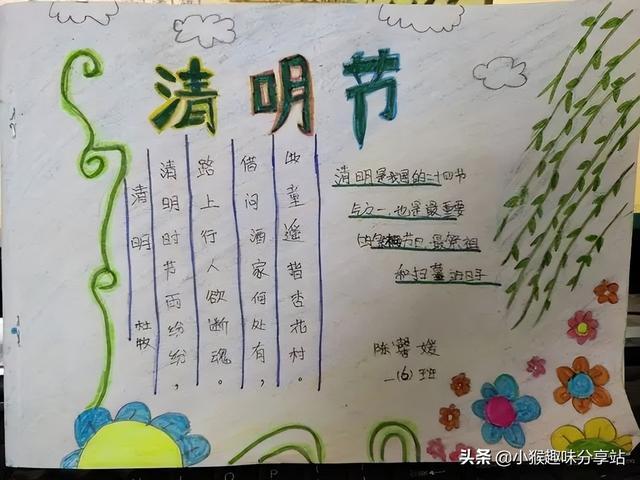 清明节
清明 杜牧
清明时节雨纷纷,
路上行人欲断魂。
借问酒家何处有,
童遥指杏花村。
清明是我国的二十四节
一也是最重要
节日 是祭祖
和扫墓的日子
陈馨媛
一(6)班
头条 @小猴趣味分享站